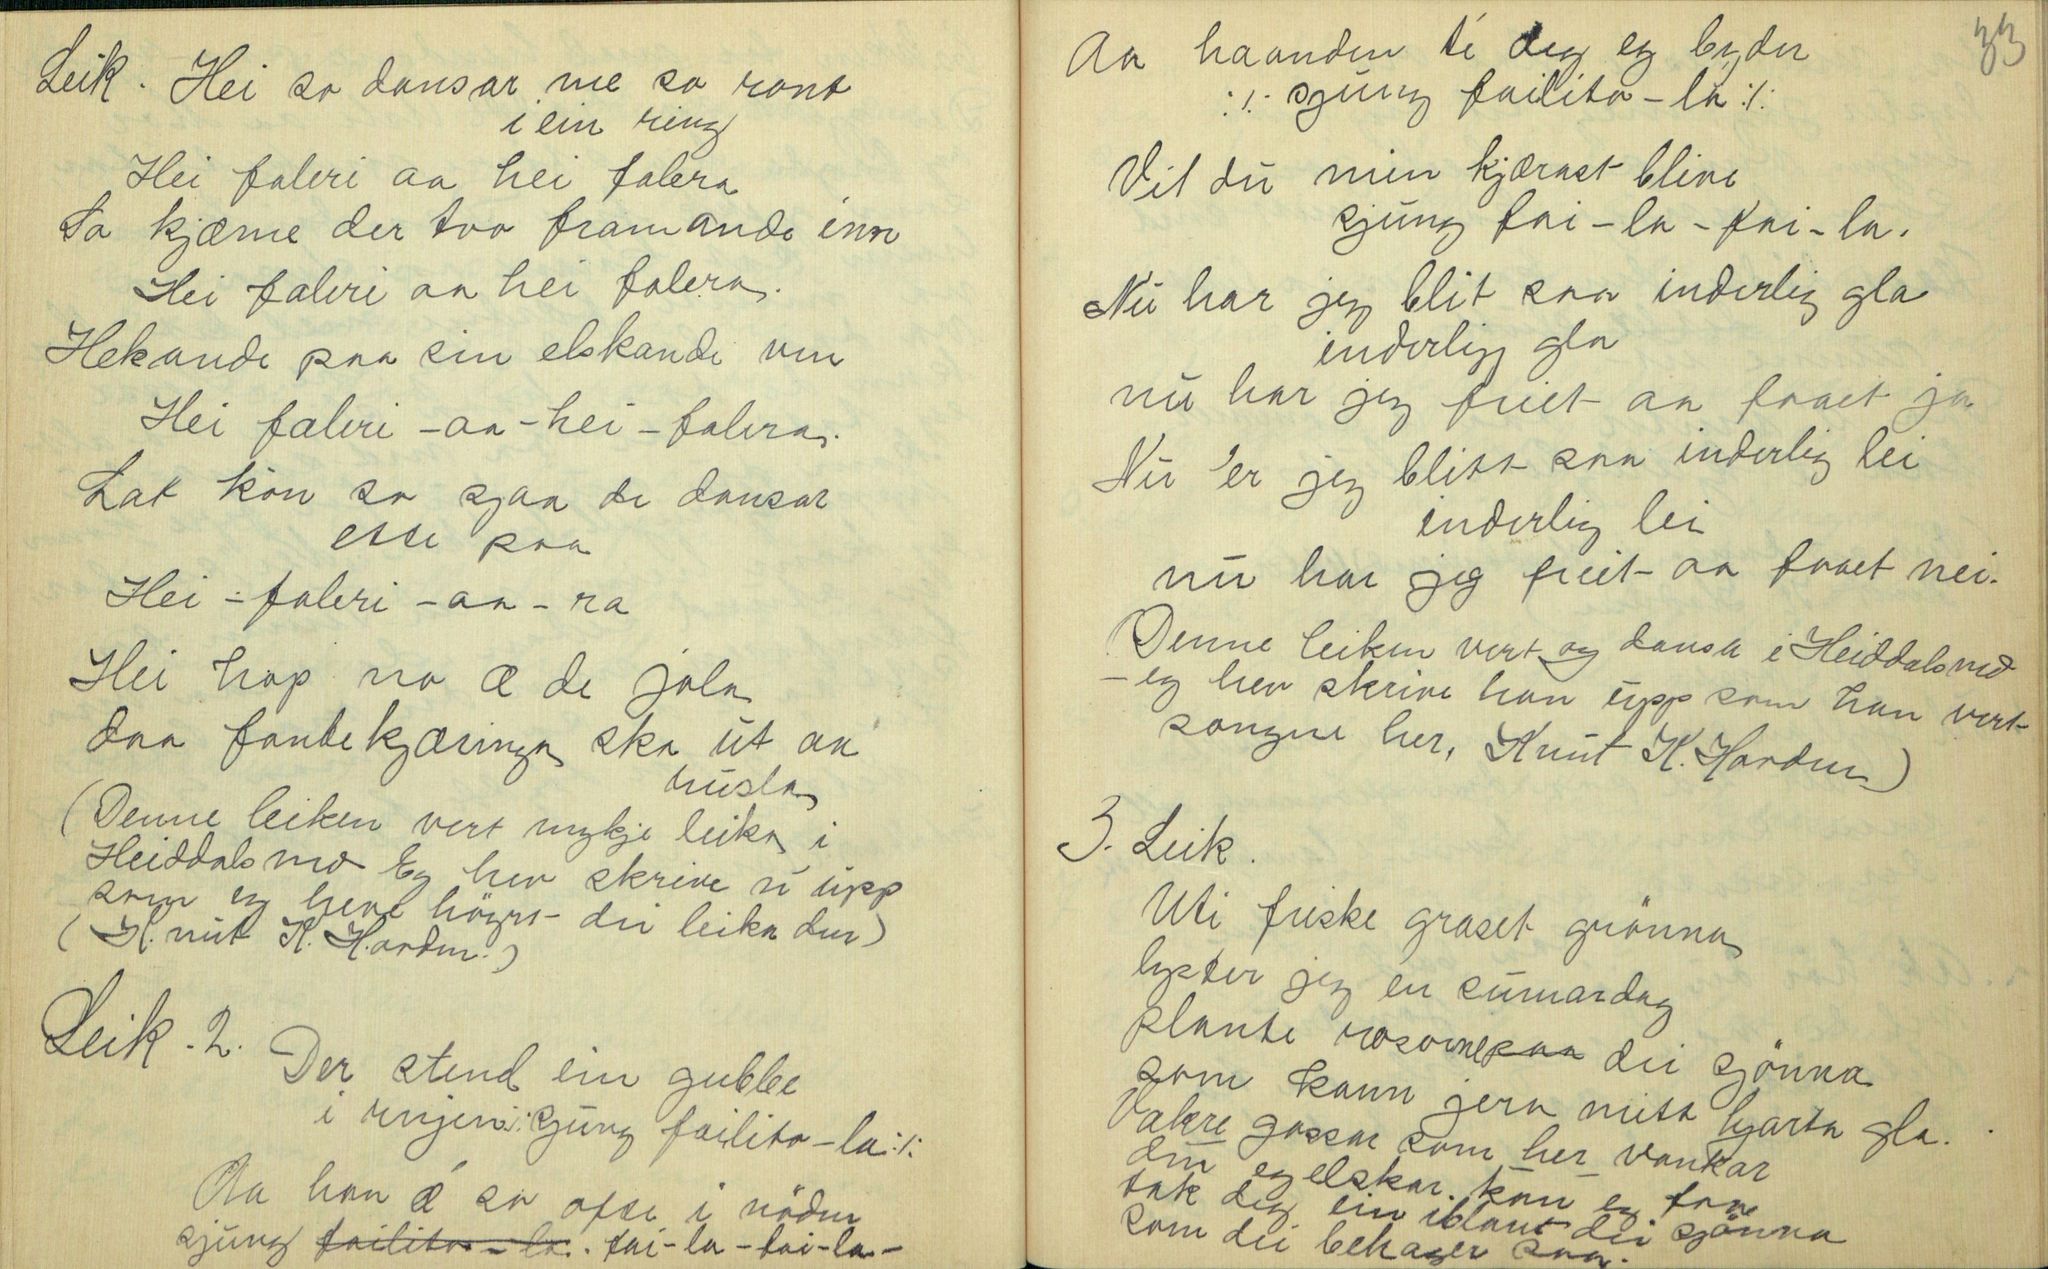 Leik. Hei so dansar me so rant
i ein ring
Hei faleri aa hei falera
So kjæme der tvo framande inn
Hei faleri aa hei falera.
Hekande paa sin elskande ven
Hei faleri - aa - hei - falera.
Lat kön so sjaa de dansar
ette paa
Hei - faleri - aa - ra
Hei hop no æ de jola
daa fantekjæringa ska ut aa
rusla
(Denne leiken vert mykje leika i
Heiddalsmo Eg hev skrive n upp
som eg heve höyrt dei leika den)
(Knut K. Hovden.)
Leik. 2. Der stend ein gubbe
i ringen :/: sjung failito - la :/:
Aa han æ so ofte i nöden
sjung failito - la. fai - la - fai - la -
33
Aa haanden ti deg eg byder
:/: sjung failito - la :/:
Vil du min kjærast blive
sjung fai - la - fai - la.
Nu har jeg blit saa inderlig gla
inderlig gla
nu har jeg friet aa faaet ja
Nu er jeg blitt saa inderlig lei
inderlig lei
nu har jeg freit aa faaet nei.
(Denne leiken vert og dansa i Heiddalsmo
- eg hev skrive han upp som han vert
songne her, Knut K. Hovden)
3. Leik.
Uti friske graset grönna
lyster jeg en sumardag
plante rosorne paa dei sjönna
som kann jera mitt hjarta gla.
Vakre gossar som her vankar
den eg elskar. kan eg faae
tak deg ein iblant dei sjönna
som dei behager saa.